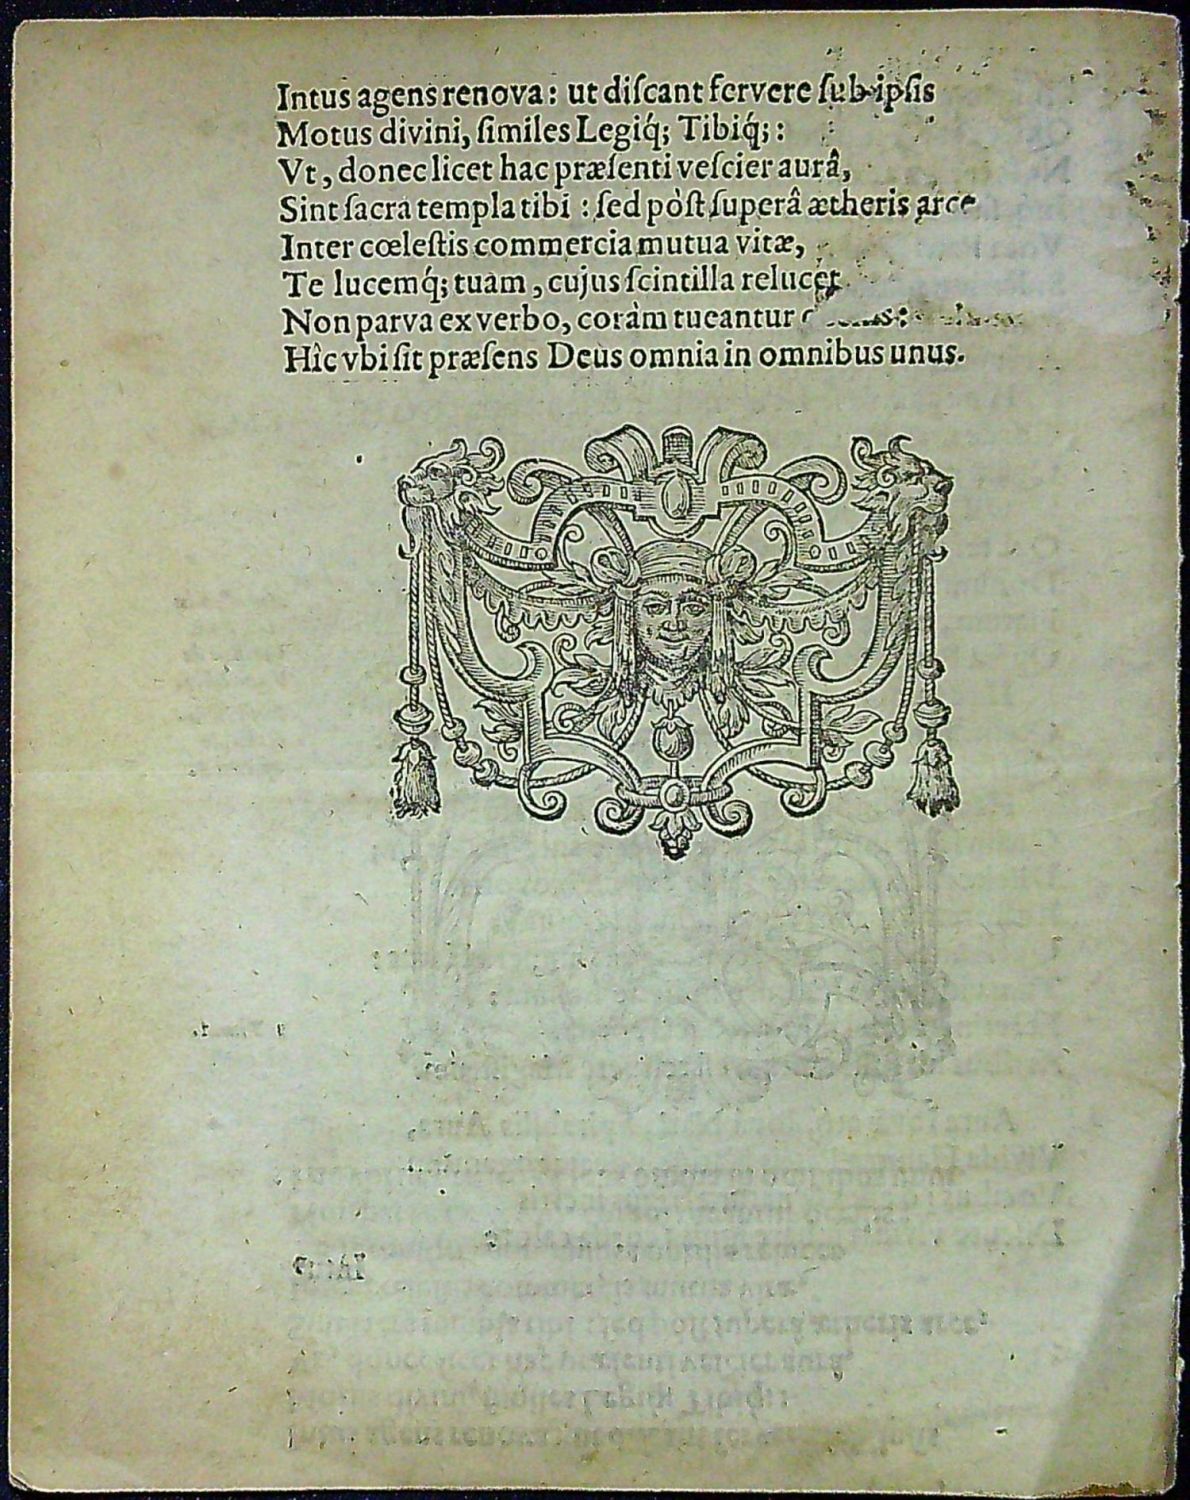 Intus agens renova: ut diſcant fervere ſub ipſis
Motus divini, ſimiles Legiq́; Tibiq́;:
Vt, donec licet hac præſenti veſcier aurâ,
Sint ſacra templa tibi: ſed pòſt ſuperâ ætheris arce
Inter cœleſtis commercia mutua vitæ,
Te lucemq́; tuam, cujus ſcintilla relucet
Non parva ex verbo, coràm tueantur
Hîc vbi ſit præſens Deus omnia in omnibus unus.